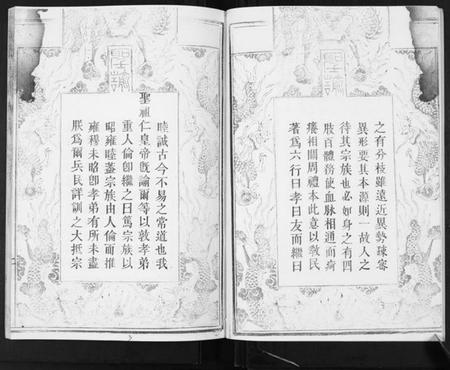 聖諭
之有分枝雖遠近異勢疎密
異形要其本源則一故人之
待其宗族也必如身之有四
肢百體務使血脉相通而疴
癢相關周禮本此意以敎民
著爲六行曰孝曰友而繼曰
聖諭
睦誠古今不易之常道也我
聖祖仁皇帝旣諭爾等以敦孝弟
重人倫卽繼之曰篤宗族以
昭雍睦葢宗族由人倫而推
雍穆未昭卽孝弟有所未盡
朕爲爾兵民詳訓之大抵宗